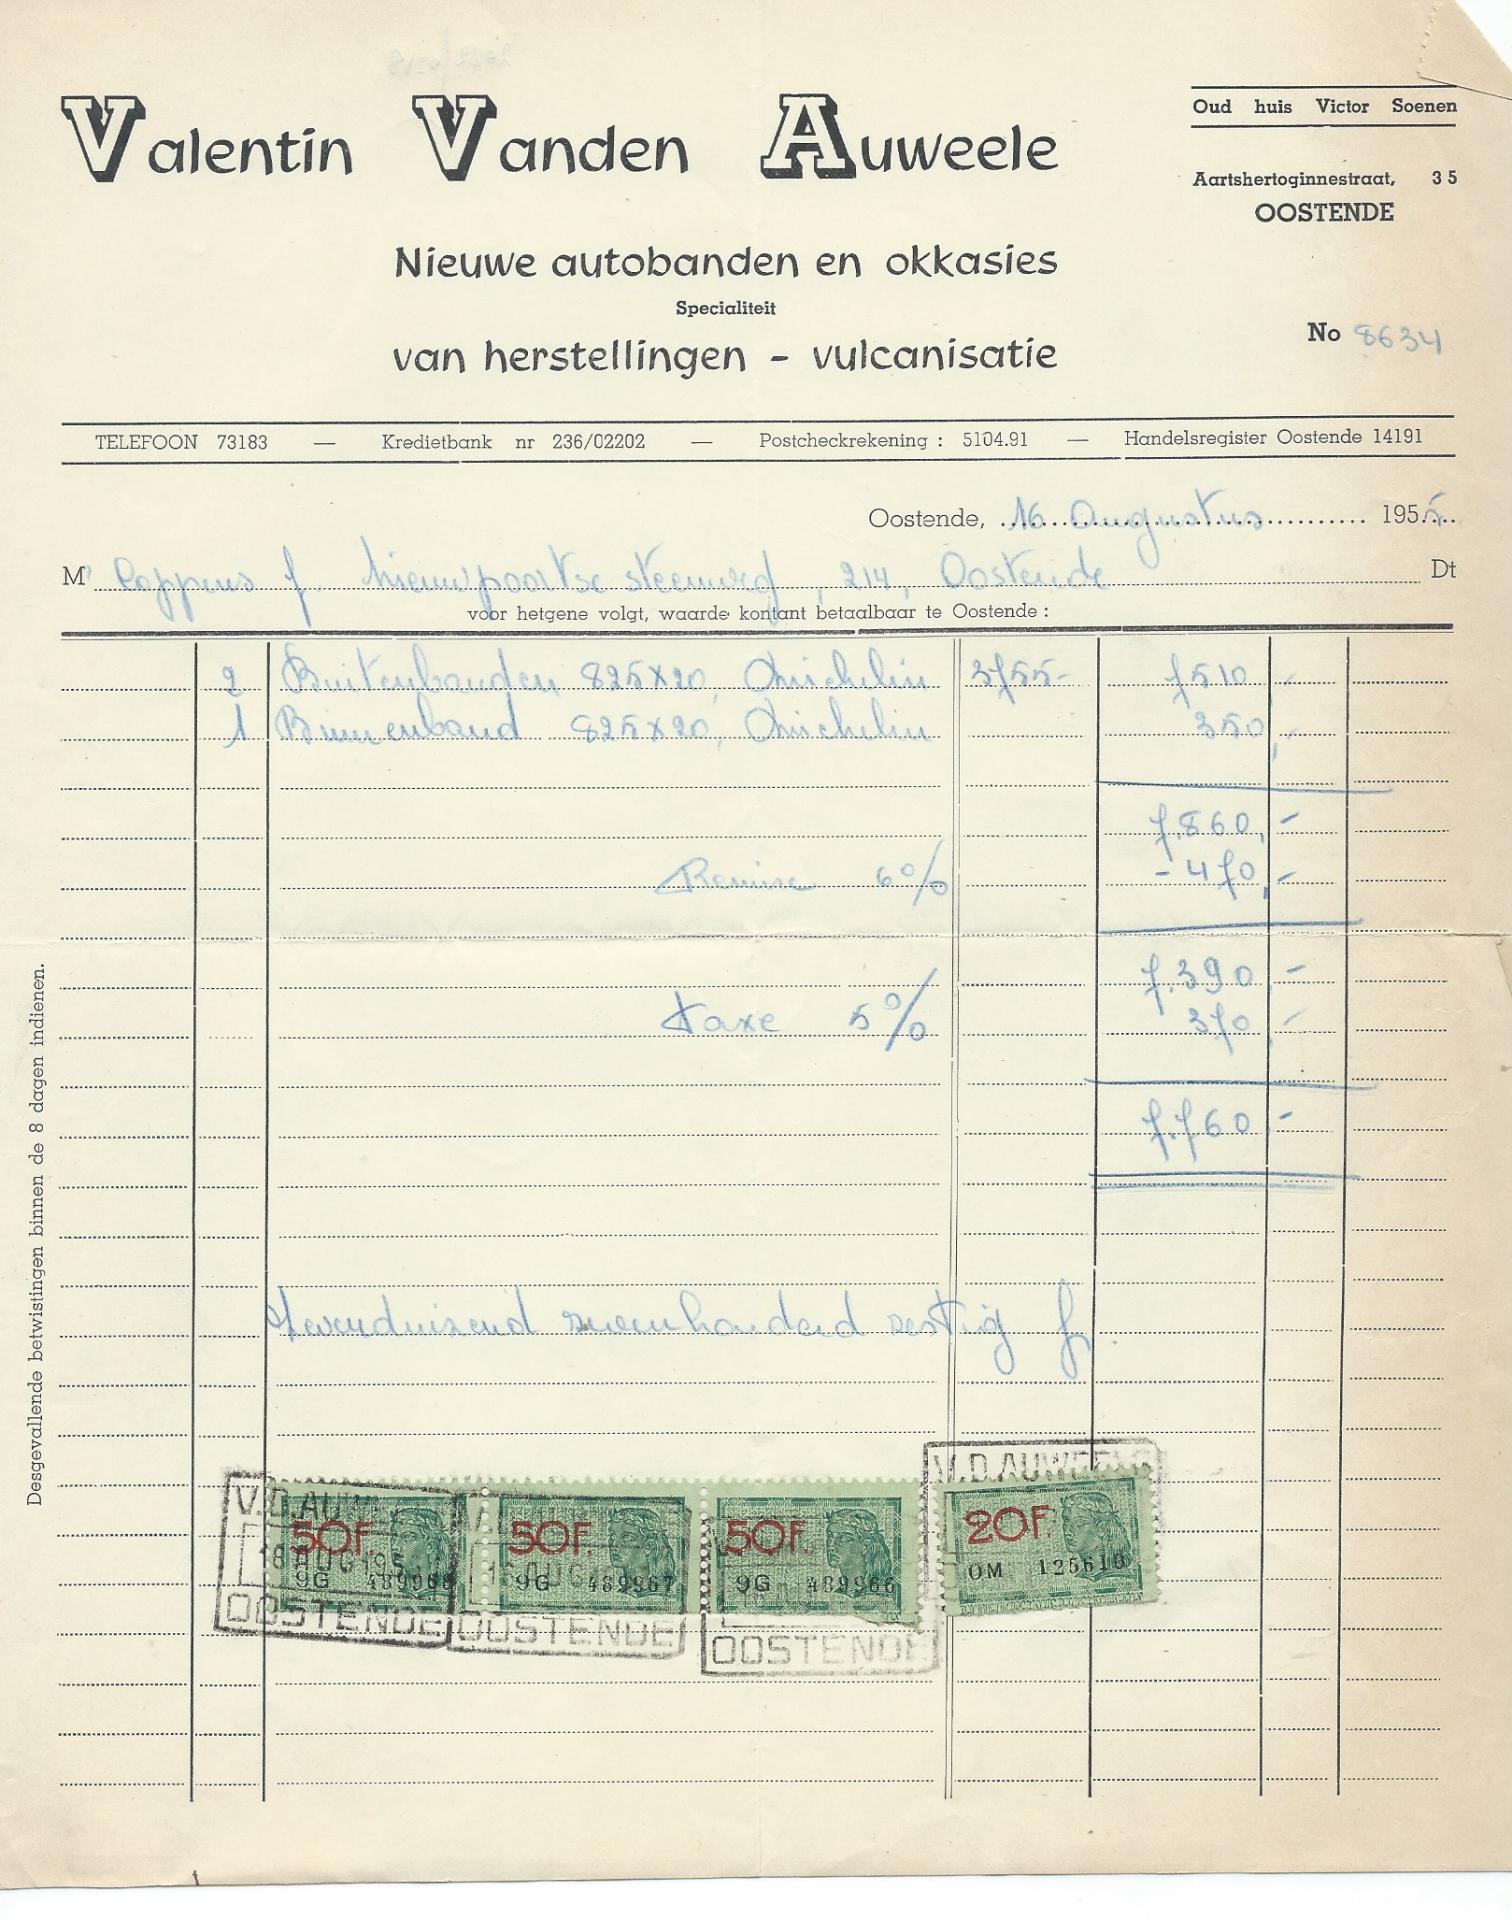 Valentin Vanden Auweele
Oud huis Victor Soenen
Aartshertoginnestraat, 35
OOSTENDE
Nieuwe autobanden en okkasies
Specialiteit
van herstellingen - vulcanisatie
No 8634
TELEFOON 73183 — Kredietbank nr 236/02202 — Postcheckrekening : 5104.91 — Handelsregister Oostende 14191
Oostende, 16 Augustus 1955
Mr Coppens f. Nieuwpoortse steenweg, 214, Oostende Dt
voor hetgene volgt, waarde kontant betaalbaar te Oostende :
2 Buitenbanden 825x20, Michelin 3755- 7510,-
1 Binnenband 825x20, Michelin 350,-
7.860,-
Remise 6% - 470,-
7.390,-
Taxe 5% 370,-
7.760,-
Zevenduizend zevenhonderd zestig f.
Desgevallende betwistingen binnen de 8 dagen indienen.
V.D.AUWEELE
50F. 50F. 50F. 20F.
16 AUG 195
9G 489968 9G 489967 9G 489966 OM 125610
OOSTENDE OOSTENDE OOSTENDE